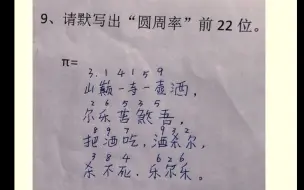 9、请默写出“圆周率”前22位。
π=
3. 1 4 1 5 9
山巅一寺一壶酒,
2 6 5 3 5
尔乐苦煞吾,
8 9 7 9 3 2
把酒吃,酒杀尔,
3 8 4 6 2 6
杀不死,乐尔乐。